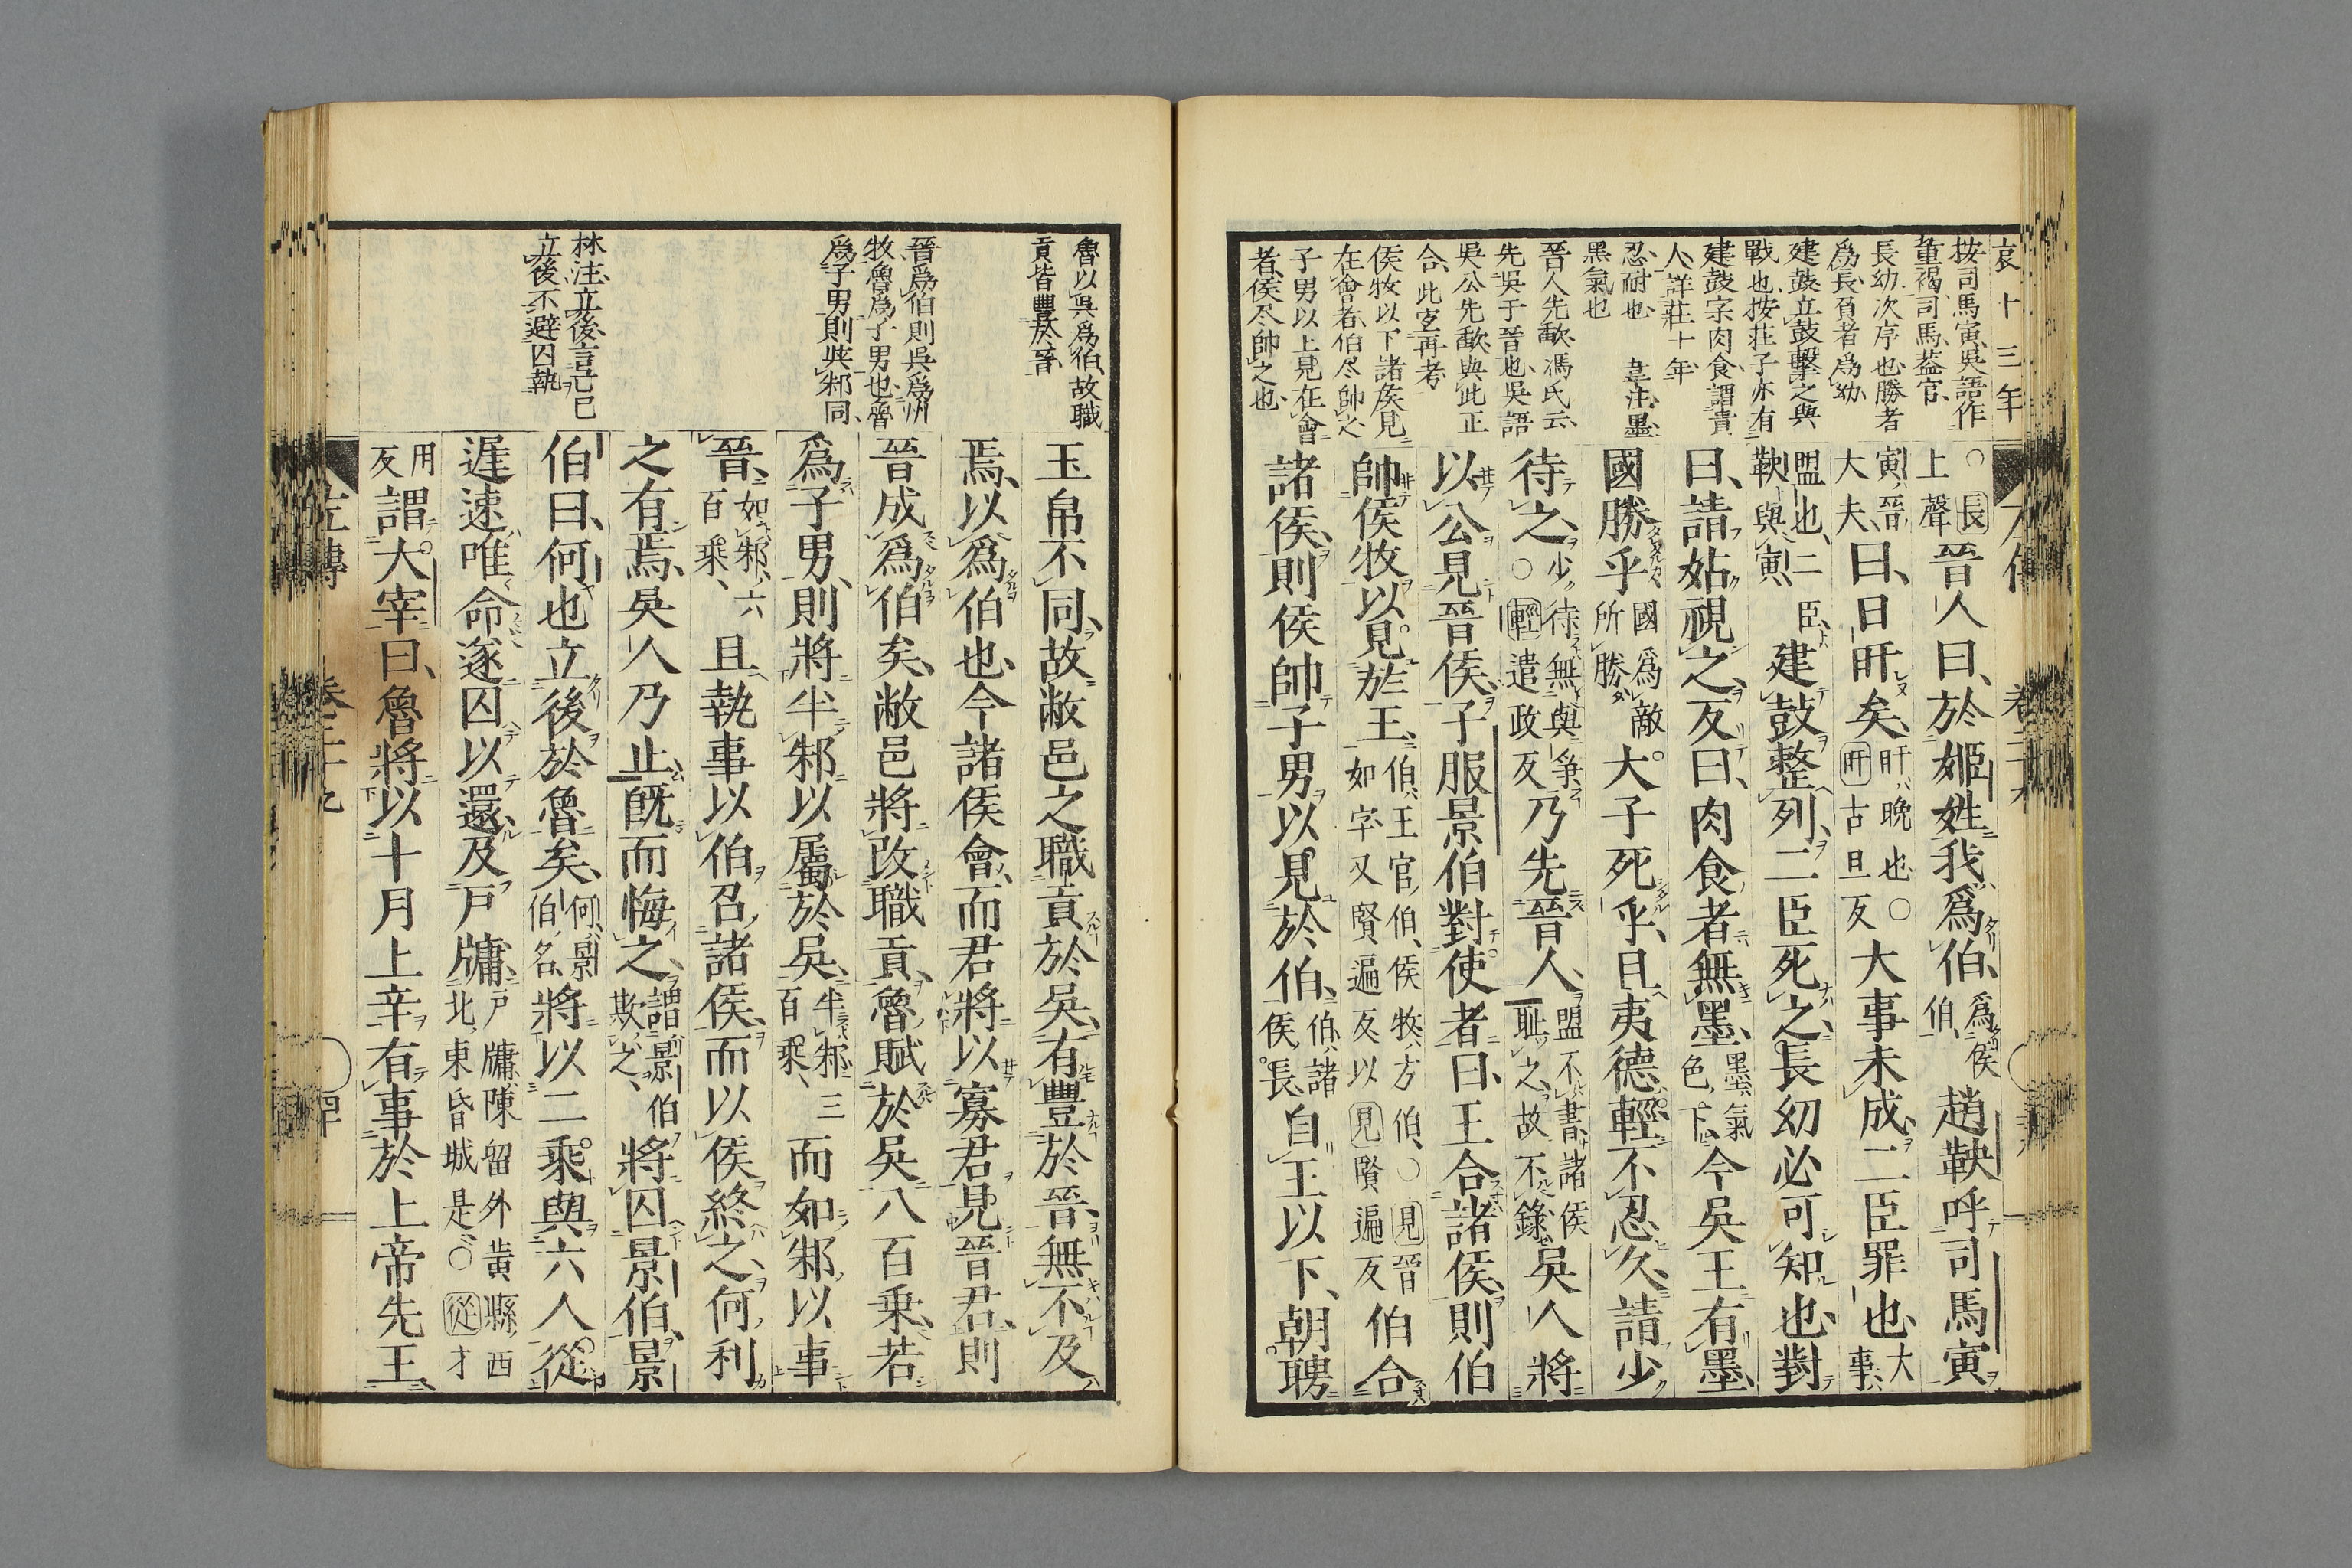 哀十三年
按司馬寅吳語作
董褐司馬蓋官
長幼次序也勝者
爲長負者爲幼
建鼓立鼓擊之與
戰也按莊子亦有
建鼓字肉食謂貴
人詳莊十年
忍耐也 韋注墨
黑氣也
晉人先歃馮氏云
先吳于晉也吳語
吳公先歃與此正
合此宜再考
侯牧以下諸侯見
在會者伯尽帥之
子男以上見在會
者侯尽帥之也
○長上聲晉人曰於姬姓我爲伯爲侯伯趙鞅呼司馬寅
寅晉大夫曰日旰矣旰晚也○旰古旦反大事未成二臣罪也大事
盟也二臣鞅與寅建鼓整列二臣死之長幼必可知也對
曰請姑視之反曰肉食者無墨墨氣色下今吳王有墨
國勝乎國爲敵所勝大子死乎且夷德輕不忍久請少
待之少待無與爭○輕遣政反乃先晉人盟不書諸侯恥之故不錄吳人將
以公見晉侯子服景伯對使者曰王合諸侯則伯
帥侯牧以見於王伯王官伯侯牧方伯○見晉如字又賢遍反以見賢遍反伯合
諸侯則侯帥子男以見於伯伯諸侯長自王以下朝聘
魯以吳爲伯故職
貢皆豐於晉
晉爲伯則吳爲州
牧魯爲子男也魯
爲子男則與邾同
林注立後言已
立後不避囚執
玉帛不同故敝邑之職貢於吳有豐於晉無不及
焉以爲伯也今諸侯會而君將以寡君見晉君則
晉成爲伯矣敝邑將改職貢魯賦於吳八百乘若
爲子男則將半邾以屬於吳半邾三百乘而如邾以事
晉如邾六百乘且執事以伯召諸侯而以侯終之何利
之有焉吳人乃止既而悔之謂景伯欺之將囚景伯景
伯曰何也立後於魯矣何景伯名將以二乘與六人從
遲速唯命遂囚以還及戶牖戶牖陳留外黃縣西北東昏城是○從才
用反謂大宰曰魯將以十月上辛有事於上帝先王
左傳